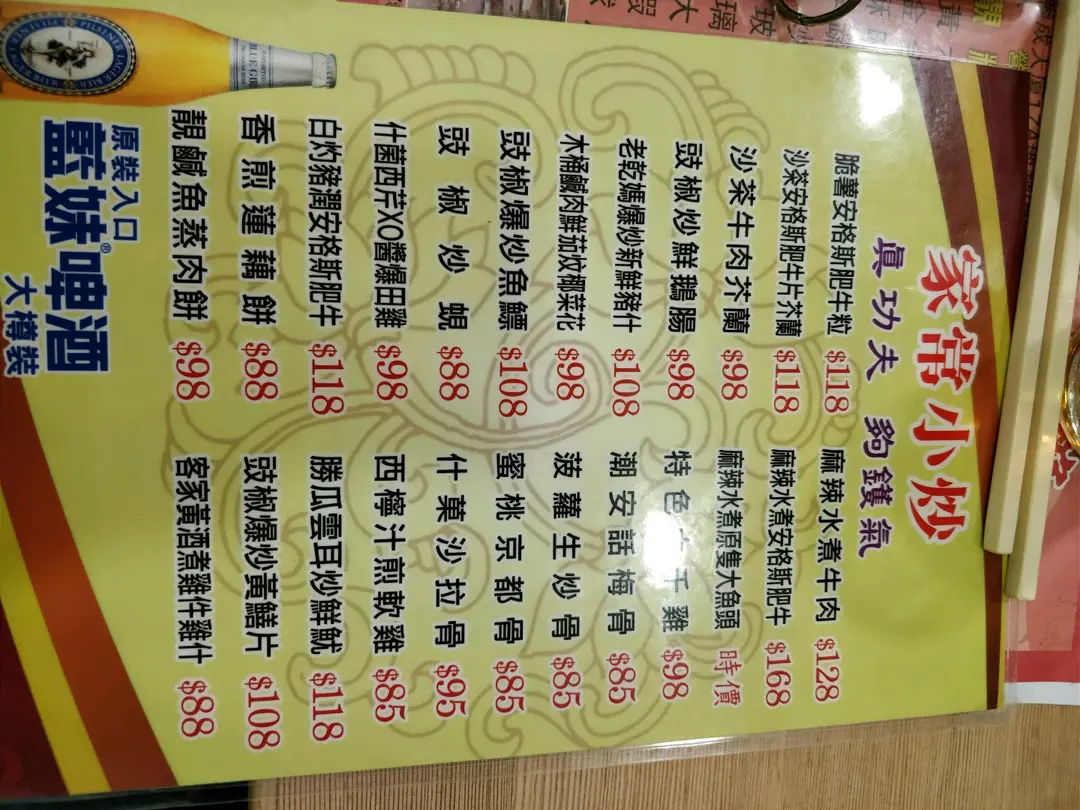 家常小炒
真功夫 夠鑊氣
脆薯安格斯肥牛粒 $118 麻辣水煮牛肉 $128
沙茶安格斯肥牛片芥蘭 $118 麻辣水煮安格斯肥牛 $168
沙茶牛肉芥蘭 $98 麻辣水煮原隻大魚頭 時價
豉椒炒鮮鵝腸 $98 特色 雞 $98
老乾媽爆炒新鮮豬什 $108 潮安話梅骨 $85
木桶鹹肉鮮茄炆椰菜花 $98 菠蘿生炒骨 $85
豉椒爆炒魚鰾 $108 蜜桃京都骨 $85
豉椒炒蜆 $88 什菓沙拉骨 $95
什菌西芹XO醬爆田雞 $98 西檸汁煎軟雞 $85
白灼豬潤安格斯肥牛 $118 勝瓜雲耳炒鮮魷 $118
香煎蓮藕餅 $88 豉椒爆炒黃鱔片 $108
靚鹹魚蒸肉餅 $98 客家黃酒煮雞件雞什 $88
原裝入口
藍妹®啤酒
大樽裝